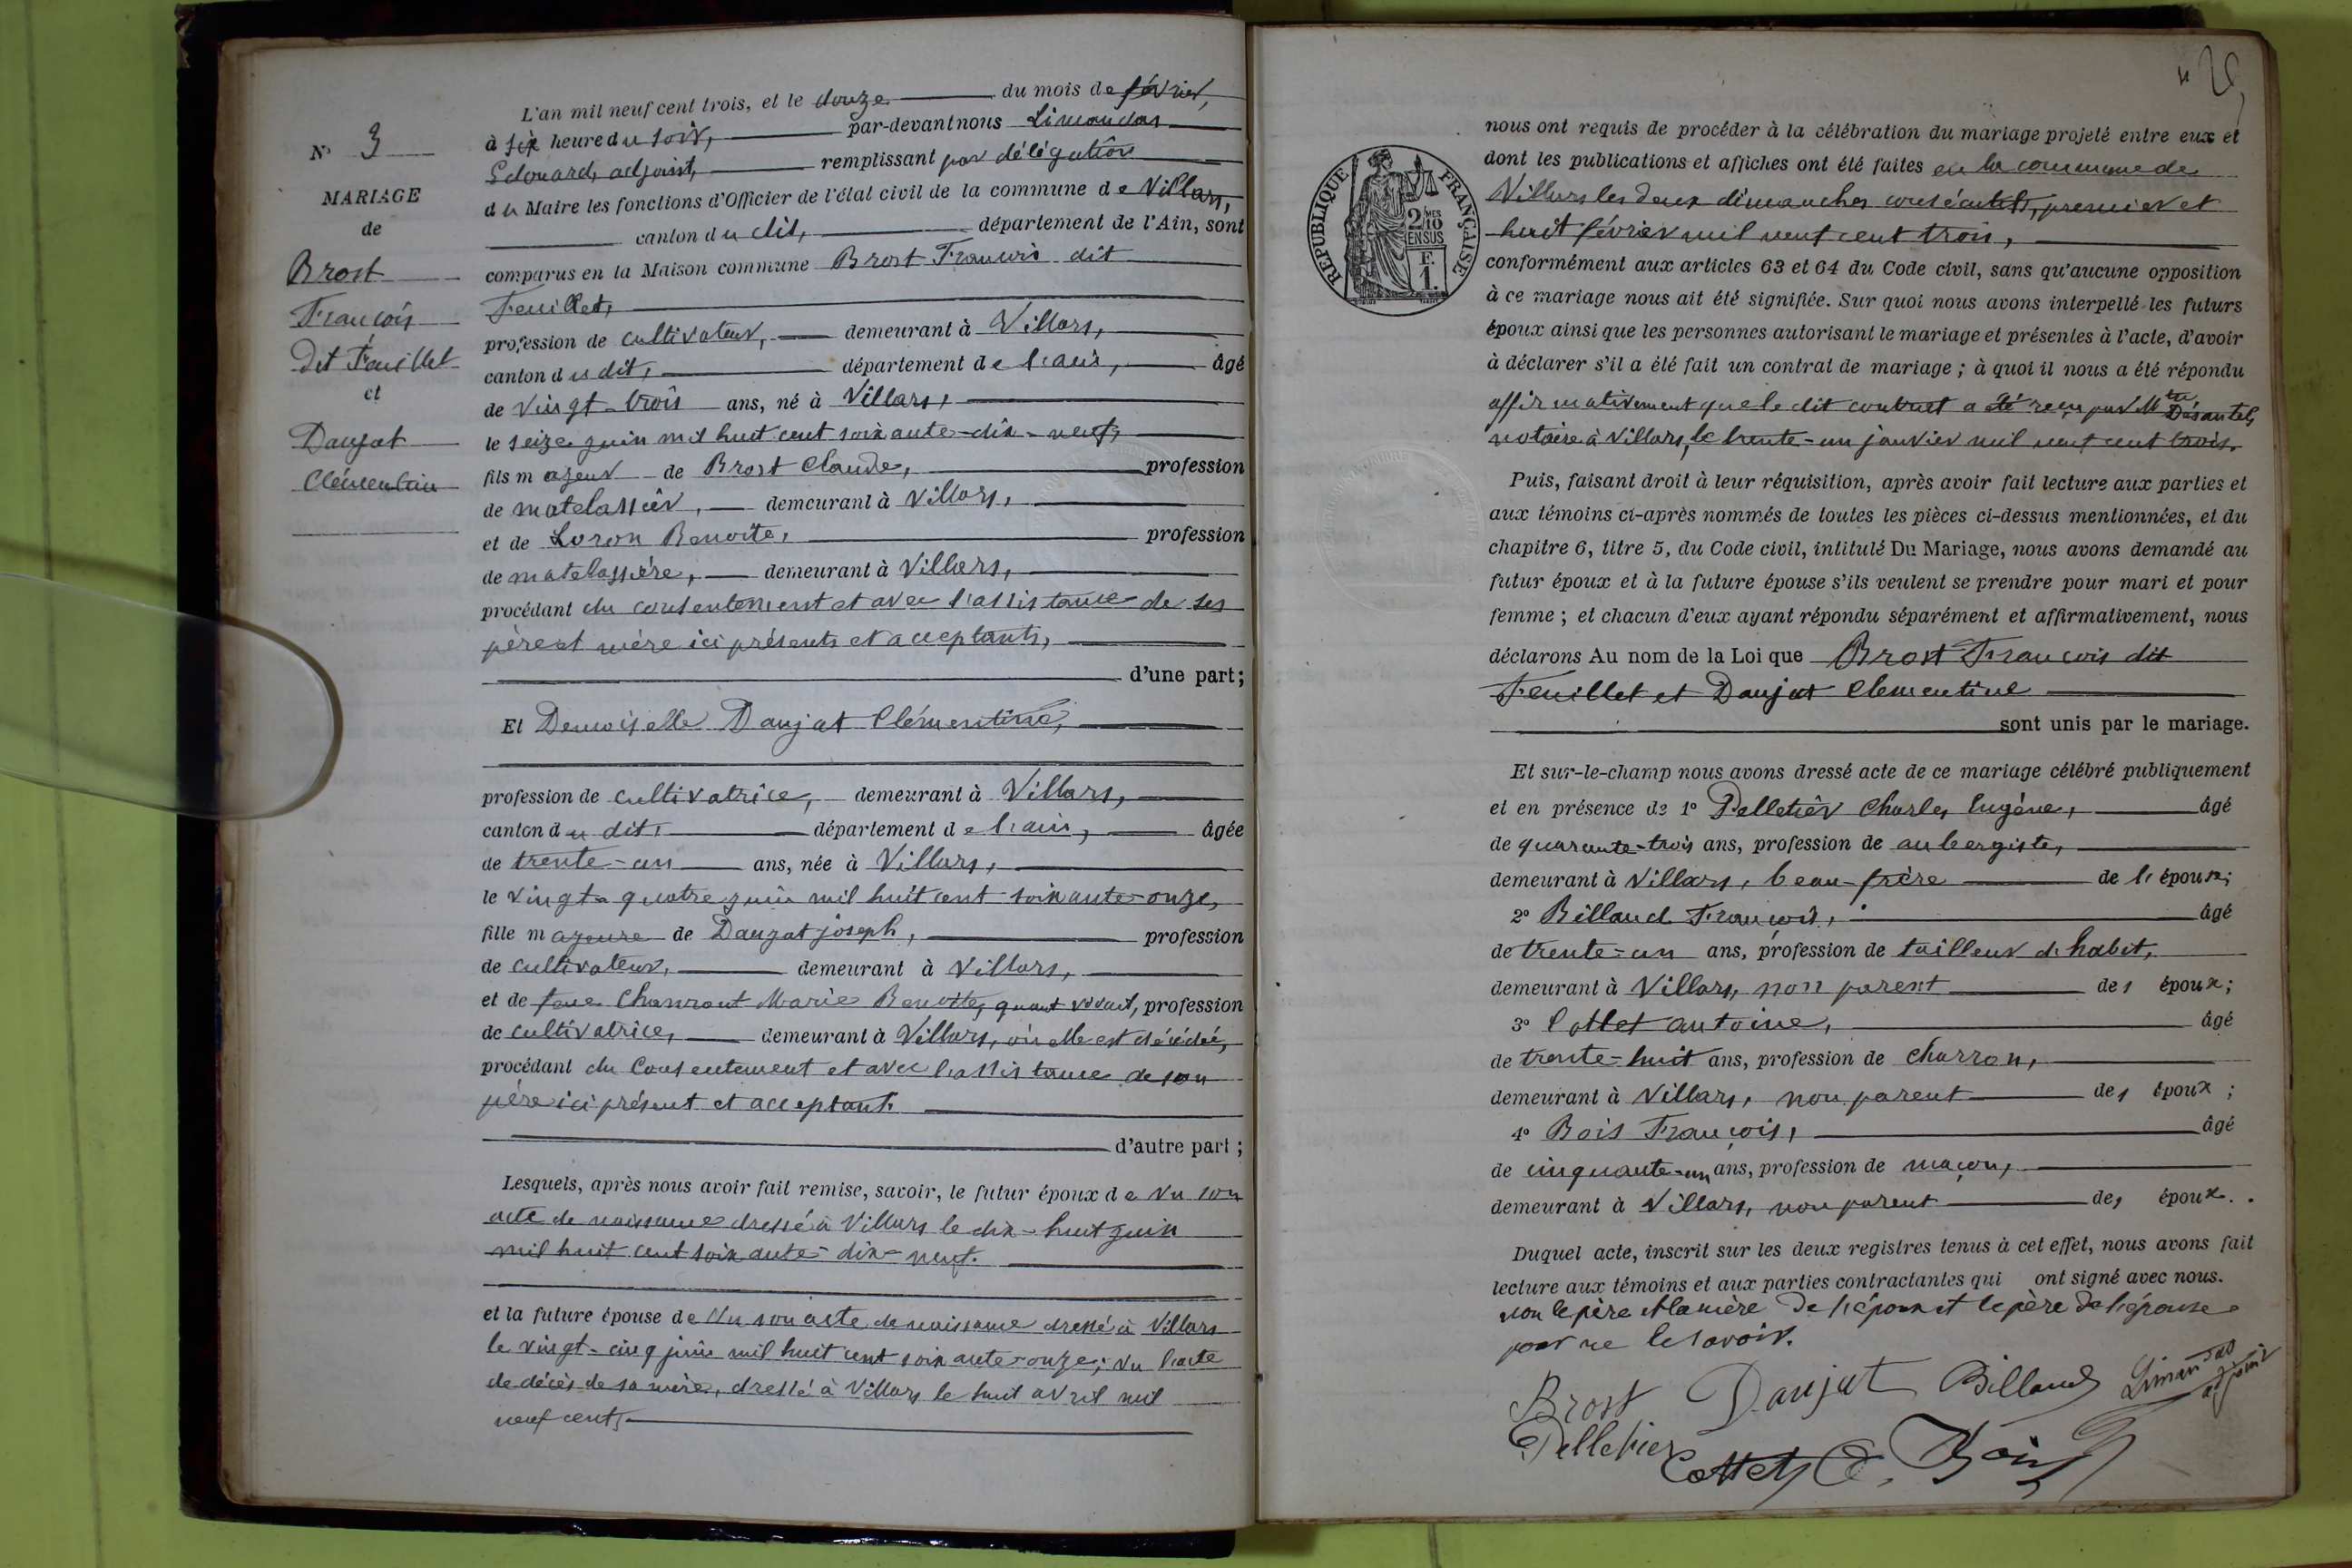 N° 3
MARIAGE
de
Brost
François
dit Feuillet
et
Daujat
Clémentine
L'an mil neuf cent trois, et le douze du mois de février,
à six heure du soir, par-devant nous Limandas
Edouard, adjoint, remplissant par délégation
du Maire les fonctions d'Officier de l'état civil de la commune de Villars,
canton du dit, département de l'Ain, sont
comparus en la Maison commune Brost François dit
Feuillet,
profession de cultivateur, demeurant à Villars,
canton du dit, département de l'ain, âgé
de vingt-trois ans, né à Villars,
le seize juin mil huit cent soixante-dix-neuf,
fils majeur de Brost Claude, profession
de matelassier, demeurant à Villars,
et de Loron Benoite, profession
de matelassière, demeurant à Villars,
procédant du consentement et avec l'assistance de ses
père et mère ici présents et acceptants,
d'une part;
Et Demoiselle Daujat Clémentine,
profession de cultivatrice, demeurant à Villars,
canton du dit, département de l'ain, âgée
de trente-un ans, née à Villars,
le vingt-quatre juin mil huit cent soixante-onze,
fille majeure de Daujat joseph, profession
de cultivateur, demeurant à Villars,
et de feue Marie Benoite, quant vivait, profession
de cultivatrice, demeurant à Villars, où elle est décédée,
procédant du consentement et avec l'assistance de son
père ici présent et acceptant.
d'autre part;
Lesquels, après nous avoir fait remise, savoir, le futur époux de vu son
acte de naissance dressé à Villars le dix-huit juin
mil huit cent soixante-dix-neuf.
et la future épouse de Vu son acte de naissance dressé à Villars
le vingt-cinq juin mil huit cent soixante-onze; vu l'acte
de décès de sa mère, dressé à Villars le huit avril mil
neuf cent,
RÉPUBLIQUE FRANÇAISE
2/10 MES
EN SUS
F.
1.
nous ont requis de procéder à la célébration du mariage projeté entre eux et
dont les publications et affiches ont été faites en la commune de
Villars les deux dimanches consécutifs, premier et
huit février mil neuf cent trois,
conformément aux articles 63 et 64 du Code civil, sans qu'aucune opposition
à ce mariage nous ait été signifiée. Sur quoi nous avons interpellé les futurs
époux ainsi que les personnes autorisant le mariage et présentes à l'acte, d'avoir
à déclarer s'il a été fait un contrat de mariage; à quoi il nous a été répondu
affirmativement que le dit contrat a été reçu par Mtre Désautels,
notaire à Villars, le trente-un janvier mil neuf cent trois.
Puis, faisant droit à leur réquisition, après avoir fait lecture aux parties et
aux témoins ci-après nommés de toutes les pièces ci-dessus mentionnées, et du
chapitre 6, titre 5, du Code civil, intitulé Du Mariage, nous avons demandé au
futur époux et à la future épouse s'ils veulent se prendre pour mari et pour
femme; et chacun d'eux ayant répondu séparément et affirmativement, nous
déclarons Au nom de la Loi que Brost François dit
Feuillet et Daujat Clementine
sont unis par le mariage.
Et sur-le-champ nous avons dressé acte de ce mariage célébré publiquement
et en présence de 1° Pelletier Charles Eugène, âgé
de quarante-trois ans, profession de aubergiste,
demeurant à Villars, beau-frère de l'épouse;
2° Billaud François, âgé
de trente-un ans, profession de tailleur d'habit,
demeurant à Villars, non parent des époux;
3° Cottet antoine, âgé
de trente-huit ans, profession de charron,
demeurant à Villars, non parent des époux;
4° Bois François, âgé
de cinquante-un ans, profession de maçon,
demeurant à Villars, non parent des époux.
Duquel acte, inscrit sur les deux registres tenus à cet effet, nous avons fait
lecture aux témoins et aux parties contractantes qui ont signé avec nous.
non le père et la mère de l'époux et le père de l'épouse
pour ne le savoir.
Brost Daujat Billaud Limandas
adjoint
Pelletier Cottet Bois